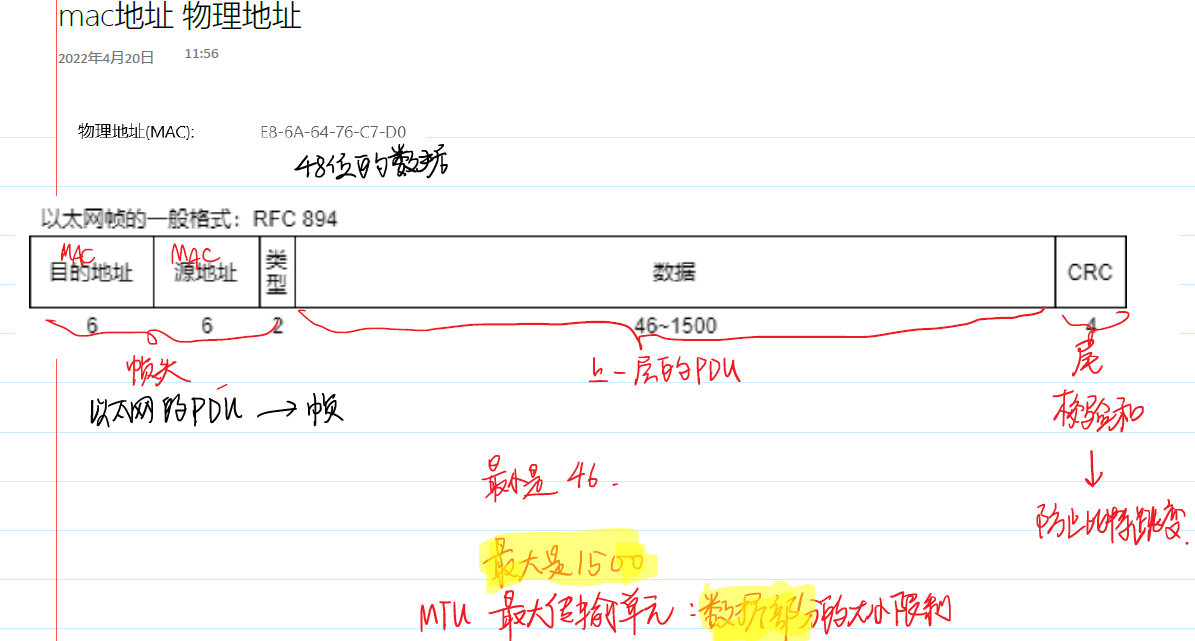 mac地址 物理地址
2022年4月20日 11:56
物理地址(MAC): E8-6A-64-76-C7-D0
48位的数据
以太网帧的一般格式：RFC 894
MAC MAC
目的地址 源地址 类型 数据 CRC
6 6 2 46~1500 4
帧头 上一层的PDU 尾
以太网的PDU → 帧 校验和
↓
最小是 46.
防止比特跳变.
最大是1500
MTU 最大传输单元：数据部分的大小限制